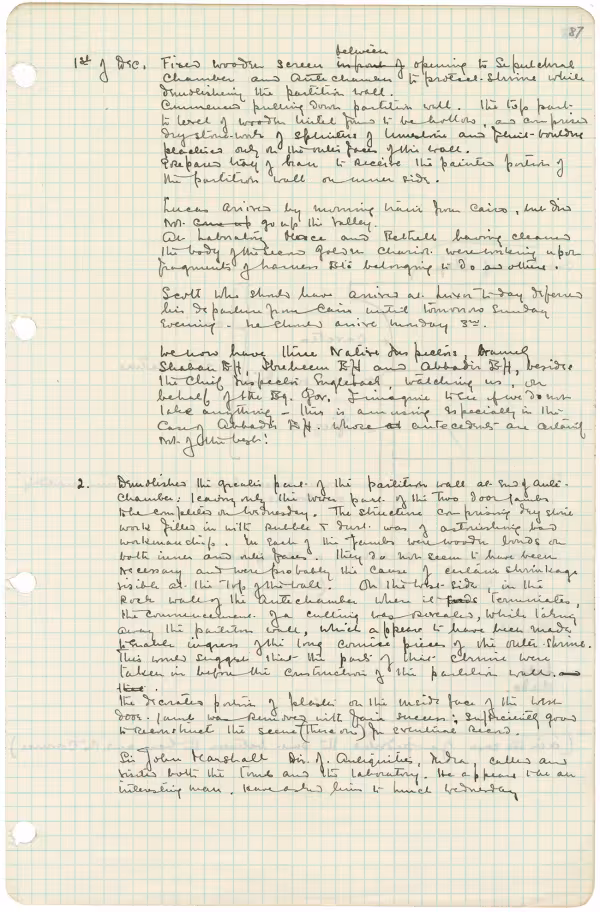 87
1st of Dec. Fixed wooden screen in front of between opening to Sepulchral
Chamber and Antechamber to protect shrine while
demolishing the partition wall.
Commenced pulling down partition wall. The top part
to level of wooden lintel found to be hollow, and comprised
dry stone-work of splinters of limestone and flint-boulders
plastered only on the outer faces of this wall.
Prepared tray of to receive the painted portion of
the partition wall on inner side.
Lucas arrived by morning train from Cairo, but did
not come up go up the valley.
At Laboratory Mace and Bethell having cleaned
the body of the second Golden Chariot were working upon
fragments of harness etc belonging to do and others.
Scott who should have arrived at Luxor to-day deferred
his departure from Cairo until tomorrow Sunday
evening - he should arrive Monday 3rd.
We now have three Native Inspectors, namely
Shaban Eff, Ibraheem Eff and Abbadir Eff, besides
the Chief Inspector Engleback, watching us, on
behalf of the Eg. Gov. I imagine to see if we do not
take anything - this is amusing especially in the
case of Abbadir Eff. whose antecedents are certainly
not of the best!
2. Demolished the greater part of the partition wall at end of Ante-
chamber: leaving only the lower part of the two door jambs
to be completed on Wednesday. The structure comprising dry stone
work filled in with rubble & dust was of astonishing bad
workmanship. In each of the jambs were wooden bonds on
both inner and outer faces. They do not seem to have been
necessary and were probably the cause of certain shrinkage
visible at the top of the wall. On the west side, in the
rock wall of the Antechamber where it ends terminates,
the commencement of a cutting was revealed, while taking
away the partition wall, which appears to have been made
to enable ingress of the long cornice pieces of the outer shrine.
This would suggest that the parts of that shrine were
taken in before the construction of the partition wall.
The decorated portion of plaster on the inside face of the west
door jamb was removed with fair success; sufficiently good
to reconstruct the scene (thereon) for eventual record.
Sir John Marshall Dir. of Antiquities, India, called and
visited both the tomb and the laboratory. He appears to be an
interesting man. Have asked him to lunch Wednesday